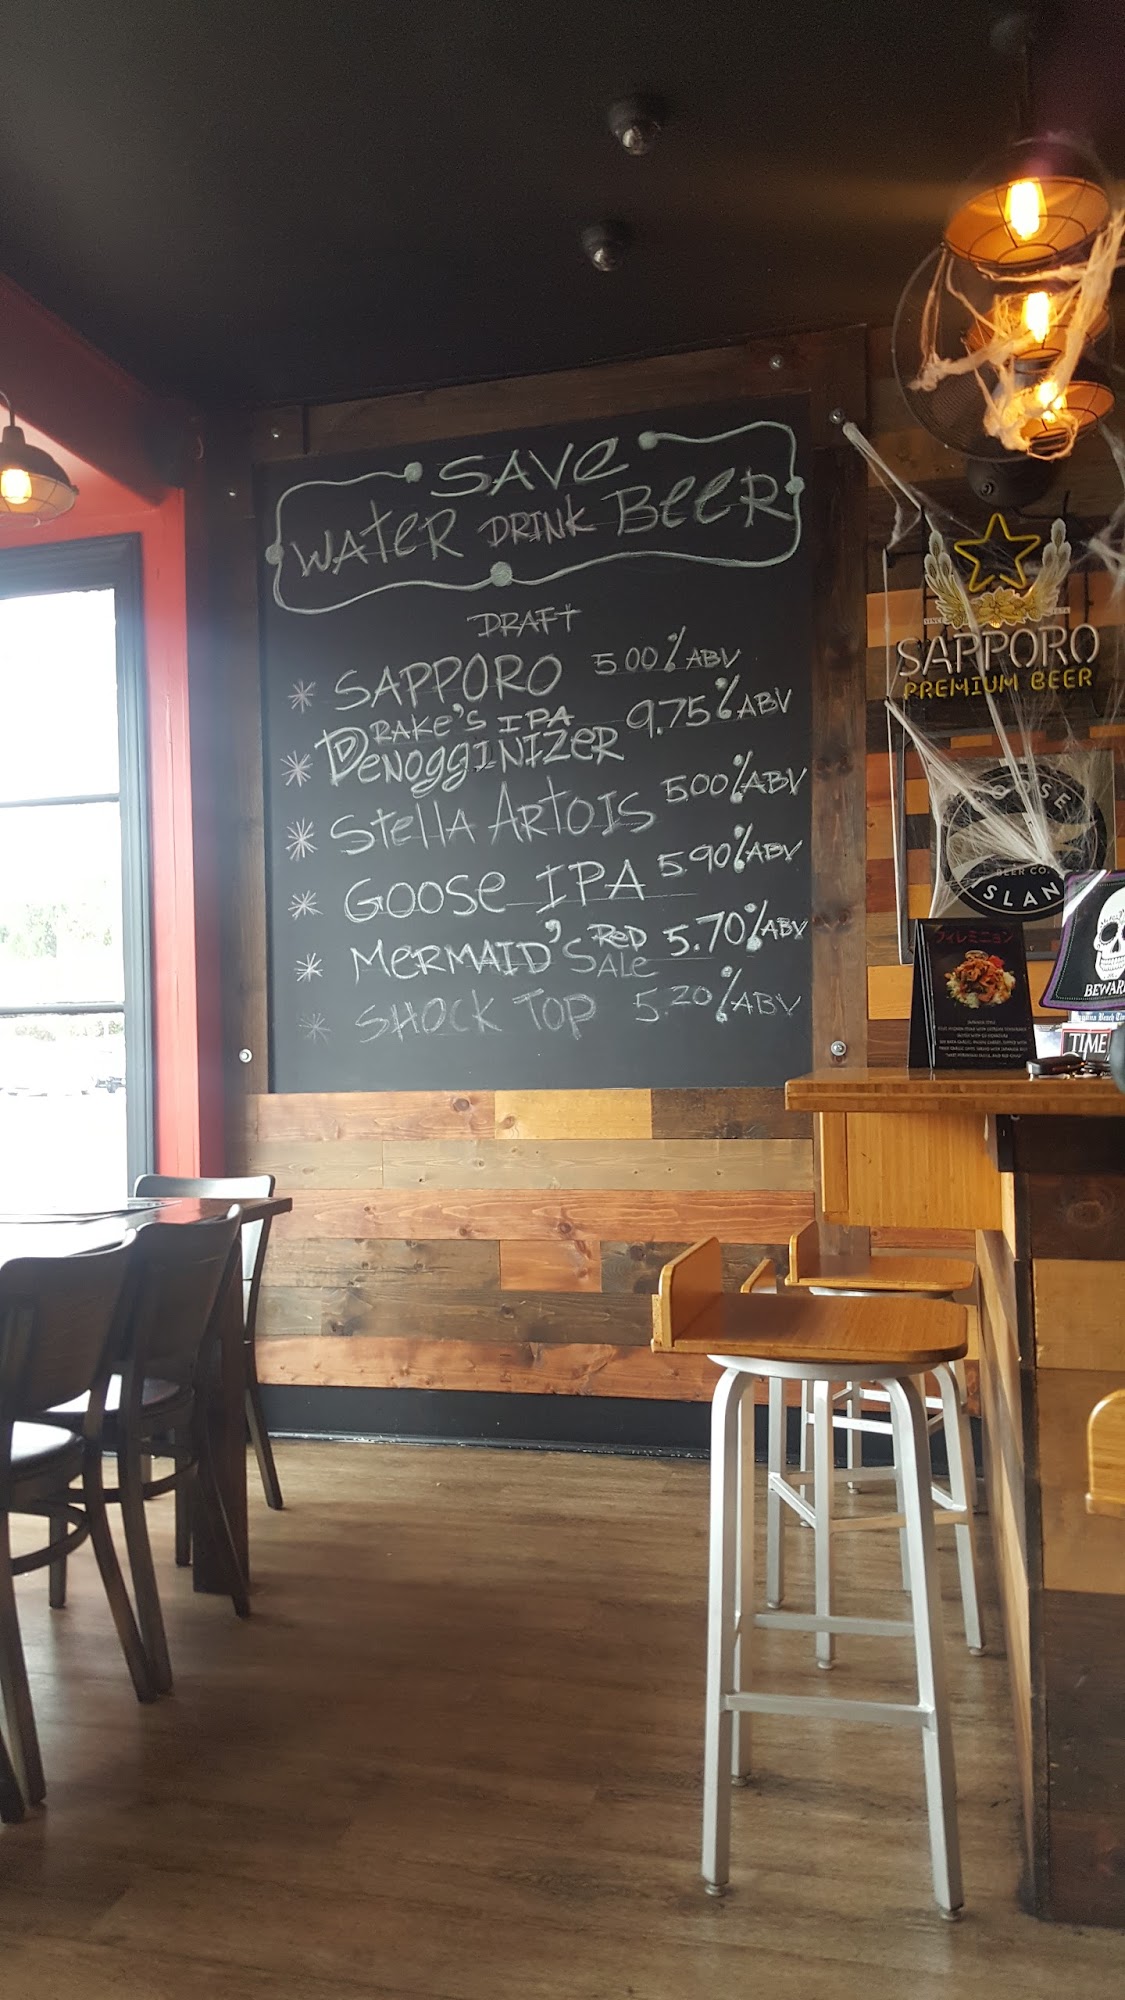 SAVE
WATER DRINK BEER
DRAFT
* SAPPORO 5.00% ABV
DRAKE'S IPA
* DENOGGINIZER 9.75% ABV
* Stella Artois 5.00% ABV
* GOOSE IPA 5.90% ABV
* MERMAID'S RED ALE 5.70% ABV
* SHOCK TOP 5.20% ABV
SAPPORO
PREMIUM BEER
GOOSE
BEER CO.
ISLAND
フィレミニヨン
BEWARE
TIME